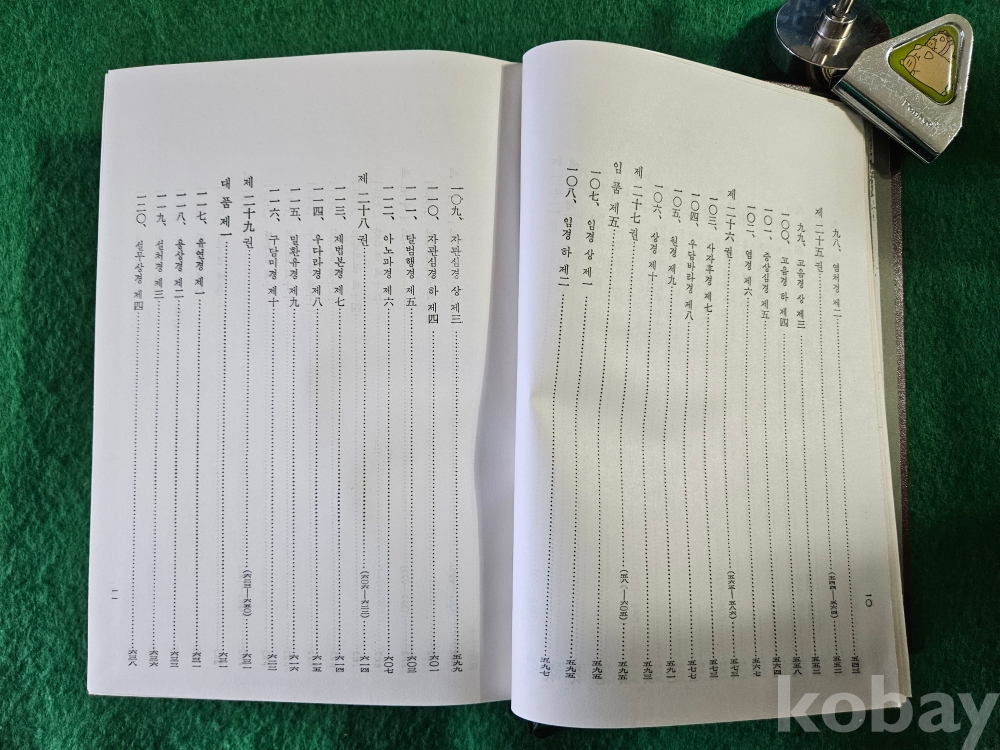 九八、 염처경 제二 五四三
제 二十五권
九九、 고음경 상 제三
一〇〇、 고음경 하 제四 五五八
一〇一、 증상심경 제五 五六四
一〇二、 염경 제六 五六七
제 二十六권 (五六五—五八六) 五七三
一〇三、 사자후경 제七 五七三
一〇四、 우담바라경 제八 五七七
一〇五、 원경 제九 五九一
一〇六、 상경 제十 五九三
제 二十七권 五九五
임 품 제五 五九五
一〇七、 임경 상 제一 五九五
一〇八、 임경 하 제二 五九七
一〇
一〇九、 자관심경 상 제三 五九九
一一〇、 자관심경 하 제四 六〇一
一一一、 달범행경 제五 六〇三
一一二、 아노파경 제六 六〇七
제 二十八권 六一四
一一三、 제법본경 제七 六一四
一一四、 우다라경 제八 六一五
一一五、 밀환유경 제九 六一六
一一六、 구담미경 제十 六二三
제 二十九권 六三一
대 품 제一 六三一
一一七、 유연경 제一 六三一
一一八、 용상경 제二 六三三
一一九、 설처경 제三 六三六
一二〇、 설무상경 제四 六三八
一一
kobay